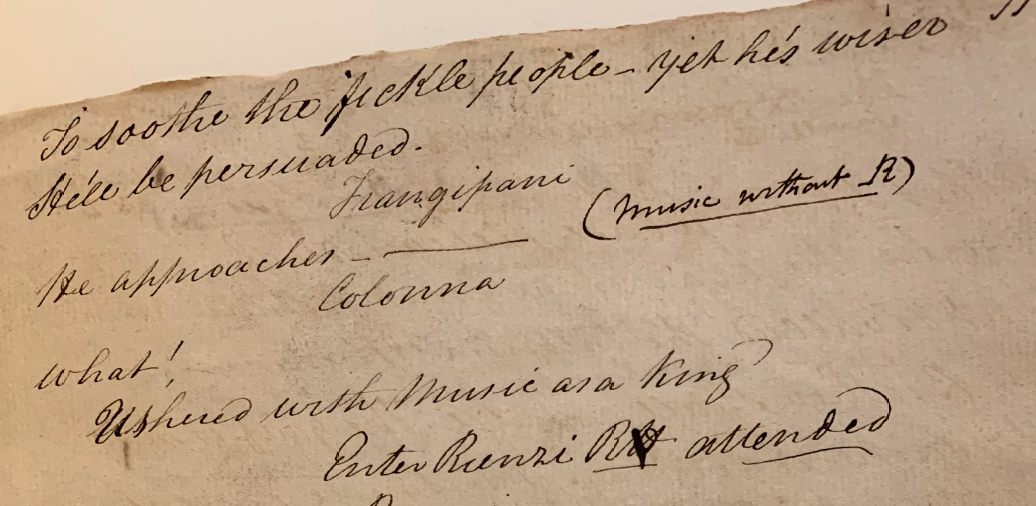 To soothe the fickle people - yet he's wiser
He'll be persuaded.
Frangipani
(Music without R)
He approaches -
Colonna
what!
Ushered with Music as a King
Enter Rienzi attended